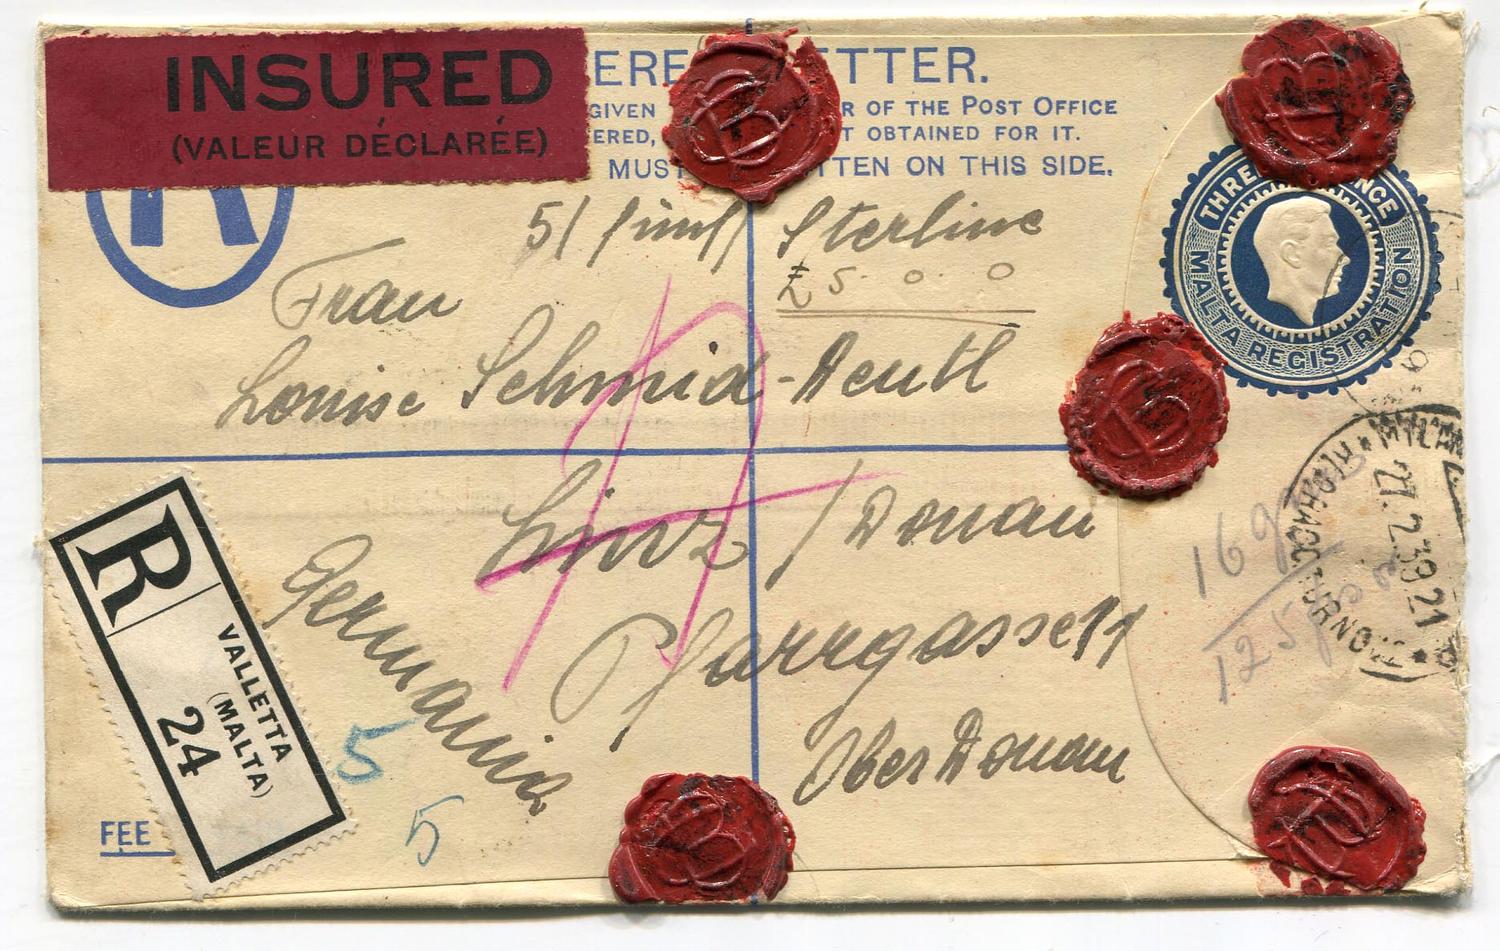 INSURED
(VALEUR DÉCLARÉE)
ERE TTER.
GIVEN R OF THE POST OFFICE
ERED, T OBTAINED FOR IT.
MUST TTEN ON THIS SIDE.
R
THREE NCE
MALTA REGISTRATION
5/ fünf/ Sterline
£5.0.0
Frau
Louise Schmid-Deutl
Linz / Donau
Pfarrgasse 11
Ober Donau
Germania
R
VALLETTA
(MALTA)
24
5
5
FEE
16g
125
MILAN
27.2.39.21